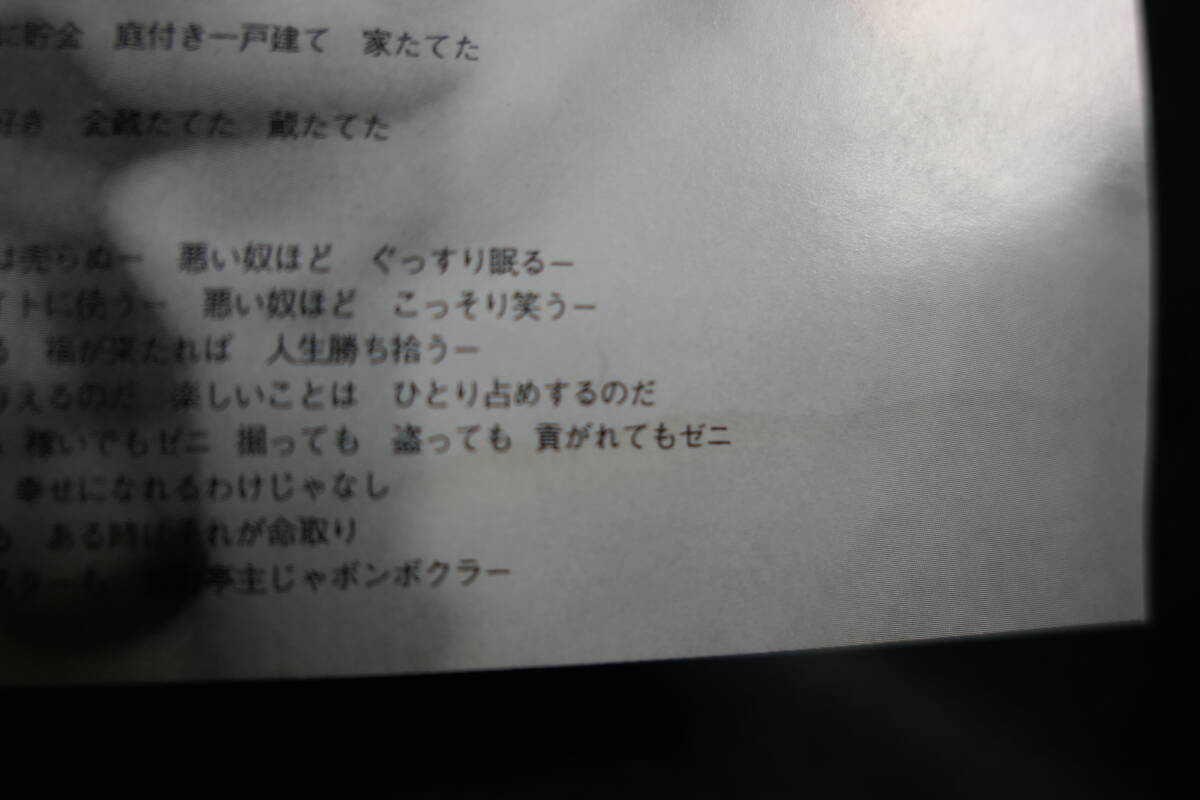 に貯金　庭付き一戸建て　家たてた
好き　金蔵たてた　蔵たてた
は売らぬー　悪い奴ほど　ぐっすり眠るー
イトに使うー　悪い奴ほど　こっそり笑うー
る　福が来たれば　人生勝ち拾うー
与えるのだ　楽しいことは　ひとり占めするのだ
稼いでもゼニ　掘っても　盗っても　貢がれてもゼニ
幸せになれるわけじゃなし
も　ある時はそれが命取り
スターも　亭主じゃボンボクラー